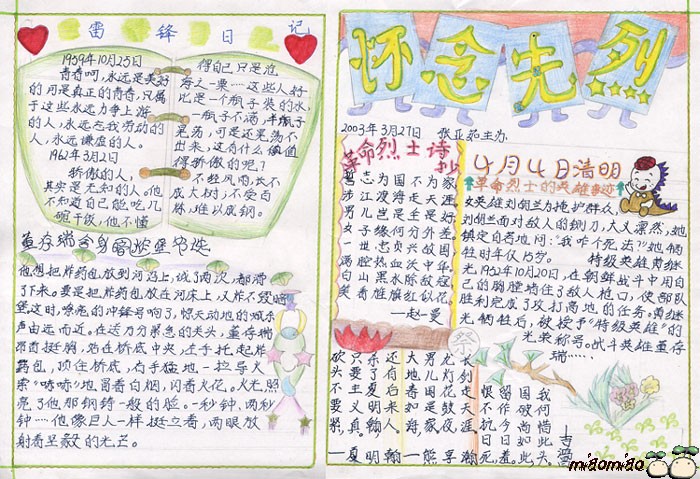 雷锋日记
1959年10月25日
青春呵,永远是美好
的,可是真正的青春,只属
于这些永远力争上游
的人,永远忘我劳动的
人,永远谦虚的人。
1962年3月2日
骄傲的人,
其实是无知的人。他
不知道自己能吃几
碗干饭,他不懂
得自己只是沧
海之一粟……这些人好
比是一个瓶子装的水,
一瓶子不满,半瓶子
晃荡,可是还晃荡不
出来,这有什么值
得骄傲的呢?
不经风雨,长不
成大树;不受百
炼,难以成钢。
董存瑞舍身
他想把炸药包放到河沿上,试了两次,都滑
了下来。要是把炸药包放在河床上,又炸不毁暗
堡。这时,嘹亮的冲锋号响了,惊天动地的喊杀
声由远而近。在这万分紧急的关头,董存瑞
昂首挺胸,站在桥底中央,左手托起炸
药包,顶住桥底,右手猛地一拉导火
索"哧哧"地冒着白烟,闪着火花。火光照
亮了他那钢铸一般的脸。一秒钟、两秒
钟……他像巨人一样挺立着,两眼放
射着坚毅的光芒。
怀念先烈
2003年3月27日 张亚茹主办
革命烈士诗抄
誓志为国不为家
涉江渡海走天涯
男儿岂是全是好
女子缘何分外差
一世忠贞兴故国
满腔热血沃中华
白山黑水除敌寇
笑看旌旗红似花
—赵一曼
4月4日清明
革命烈士的英雄事迹
女英雄刘胡兰为掩护群众,
刘胡兰面对敌人的铡刀,大义凛然,她
镇定自若地问:"我咋个死法?"她牺
牲时年仅15岁。
特级英雄黄继
光,1952年10月20日,在朝鲜战斗中用自
己的胸膛堵住了敌人枪口,使部队
胜利完成了攻打高地的任务。黄继
光牺牲后,被授予"特级英雄"的
光荣称号。战斗英雄董存
瑞……
祭
砍头不要紧,
只要主义真,
杀了夏明翰,
还有后来人。
—夏明翰
大地春如海
男儿国是家
龙灯花鼓夜
长剑走天涯
—熊亨瀚
恨不抗日死,
留作今日羞。
国破尚如此,
我何惜此头。
—吉鸿昌
miaomiao